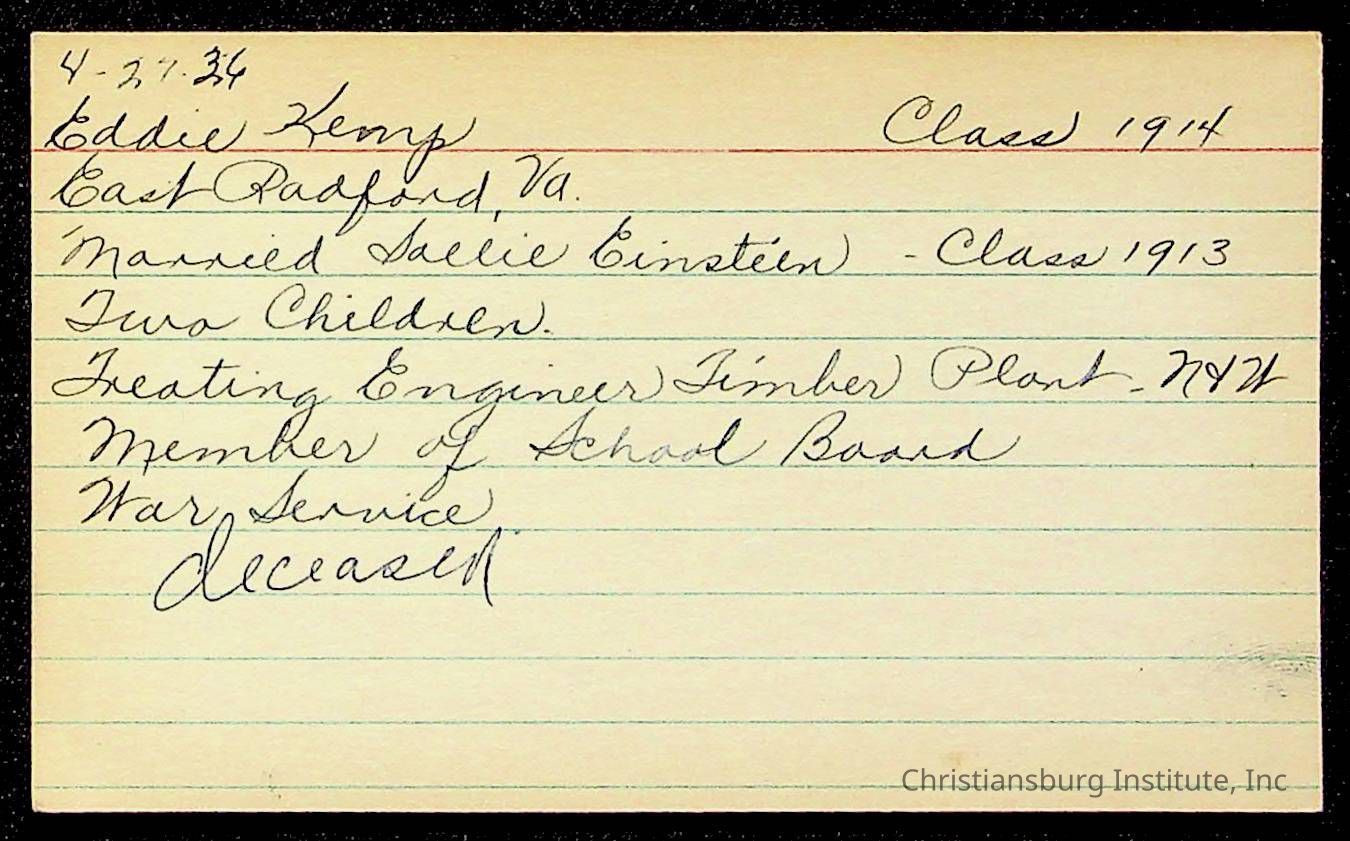 4-27-36
Eddie Kemp Class 1914
East Radford, Va.
Married Sallie Einstein - Class 1913
Two Children.
Treating Engineer Timber Plant - N&W
Member of School Board
War Service
deceased
Christiansburg Institute, Inc